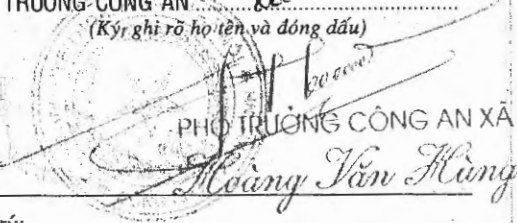 TRƯỞNG CÔNG AN
(Ký, ghi rõ họ tên và đóng dấu)
PHÓ TRƯỞNG CÔNG AN XÃ
Hoàng Văn Hùng